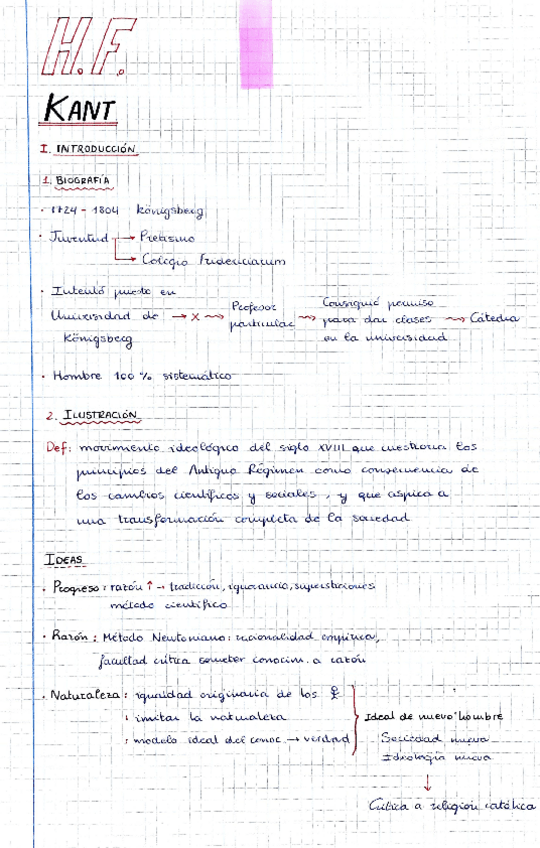 H.F.
KANT
I. INTRODUCCIÓN
1. BIOGRAFÍA
· 1724 - 1804 Königsberg
· Juventud → Pietismo
→ Colegio Fridericianum
· Intentó puesto en
Universidad de Königsberg → x → Profesor particular → Consiguió permiso para dar clases en la universidad → Cátedra
· Hombre 100% sistemático
2. ILUSTRACIÓN
Def: movimiento ideológico del siglo XVIII que cuestiona los
principios del Antiguo Régimen como consecuencia de
los cambios científicos y sociales, y que aspira a
una transformación completa de la sociedad
IDEAS
· Progreso: razón ↑ → tradición, ignorancia, supersticiones
método científico
· Razón: Método Newtoniano: racionalidad empírica,
facultad crítica someter conocim. a razón
· Naturaleza: igualdad originaria de los
: imitar la naturaleza
: modelo ideal del conoc. → verdad
Ideal de nuevo hombre
Sociedad nueva
Ideología nueva
↓
Crítica a religión católica